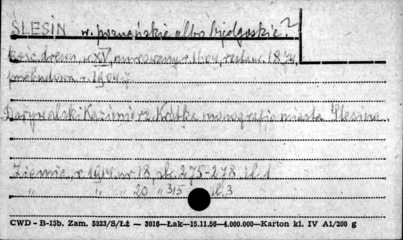 ŚLESIN w. poznańskie albo bydgoskie?
Kość. drewn. z XV, murowany r. 1614, restaur. 1874,
przebudowa r. 1904-7
Kazimierz. Krótka monografia miasta Ślesina
Ziemia, r. 1919 nr 18, str. 275-278. il. 1
" " " 20 " 315 il. 3
CWD - B-15b. Zam. 5323/S/Łż — 3016—Łak—15.11.56—4.000.000—Karton kl. IV A1/200 g